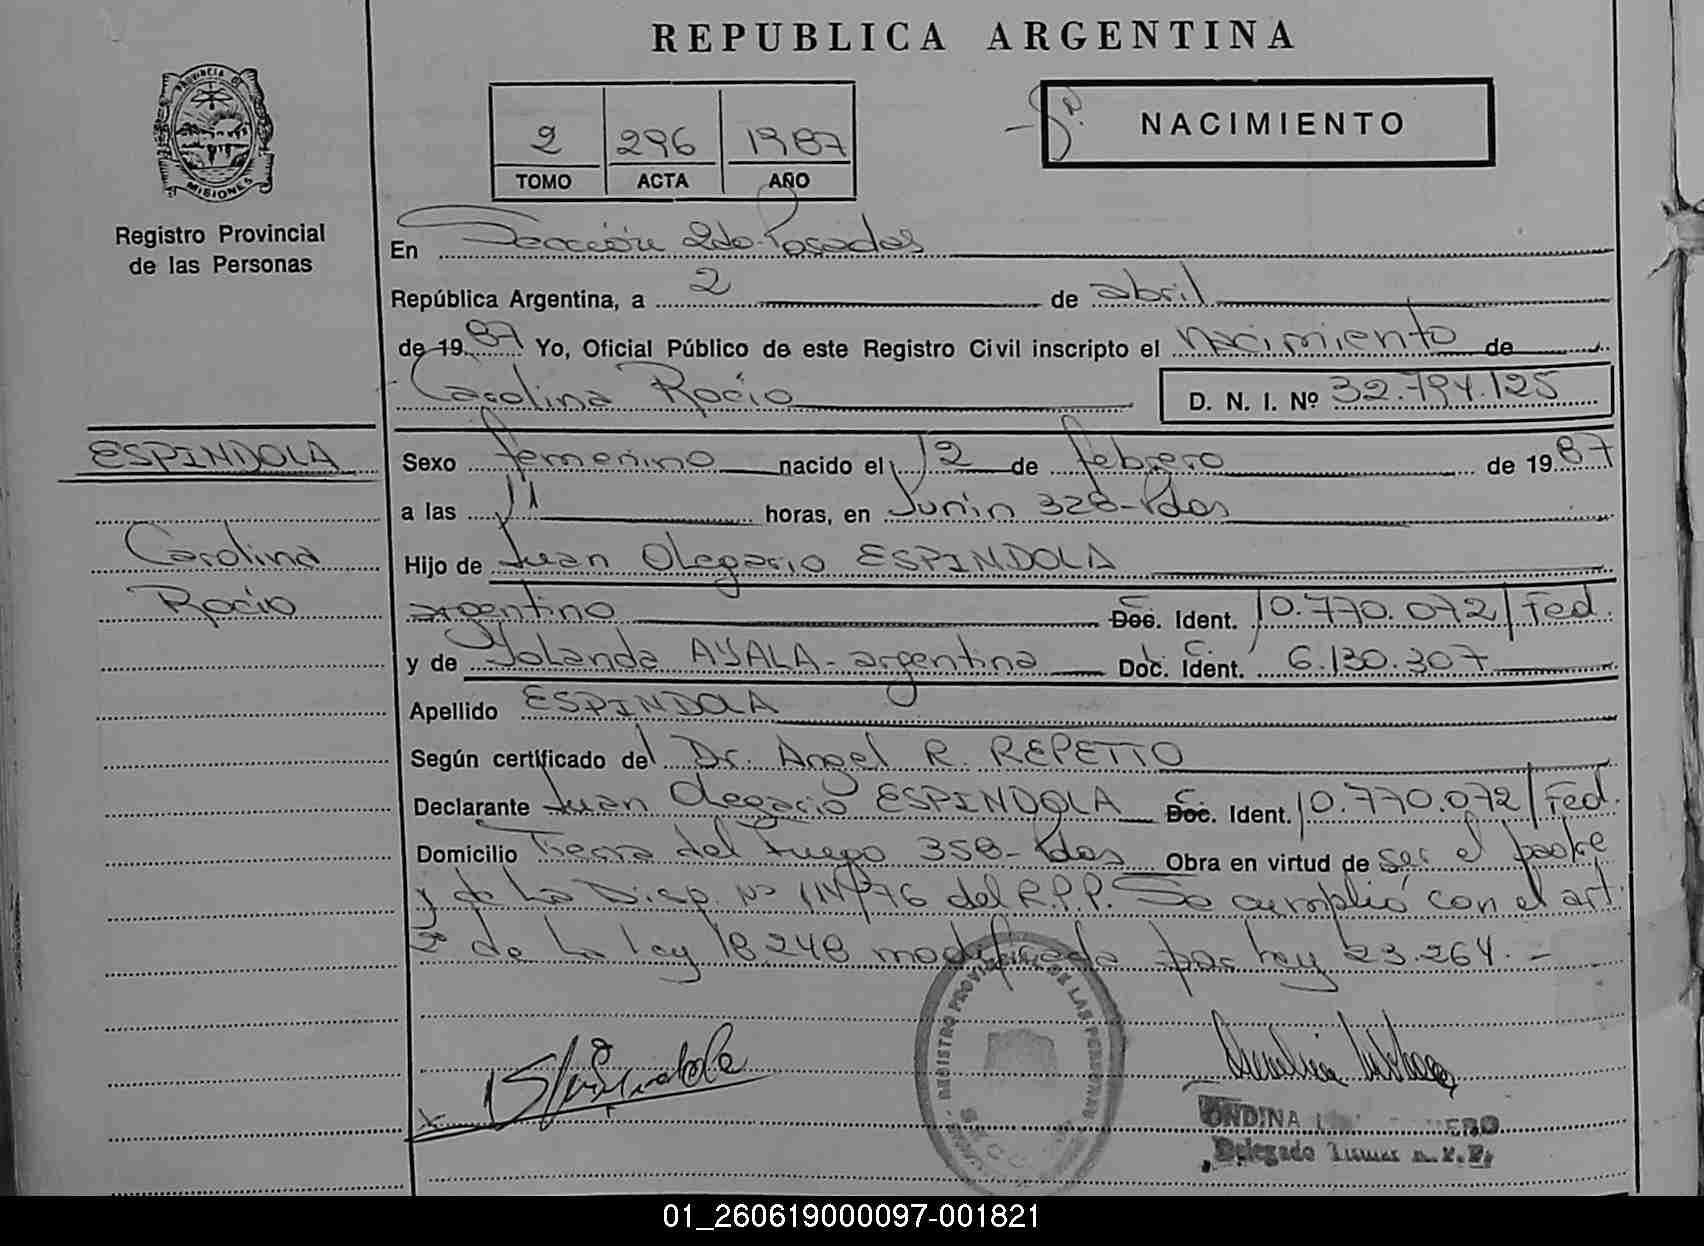 REPUBLICA ARGENTINA
PROVINCIA DE
MISIONES
Registro Provincial
de las Personas
2 296 1987
TOMO ACTA AÑO
NACIMIENTO
En Sección 2da. Posadas
República Argentina, a 2 de abril
de 1987 Yo, Oficial Público de este Registro Civil inscripto el nacimiento de
Carolina Rocio D. N. I. Nº 32.794.125
ESPINDOLA
Carolina
Rocio
Sexo femenino nacido el 12 de febrero de 1987
a las 11 horas, en Junin 328-Pdas
Hijo de Juan Olegario ESPINDOLA
argentino Doc. Ident. 10.770.072/Fed.
y de Yolanda AYALA-argentina Doc. Ident. 6.130.307
Apellido ESPINDOLA
Según certificado del Dr. Angel R. REPETTO
Declarante Juan Olegario ESPINDOLA Doc. Ident. 10.770.072/Fed.
Domicilio Tierra del Fuego 358-Pdas Obra en virtud de ser el padre
y de La Disp. Nº 114/76 del R.P.P. Se cumplió con el art.
de La ley 18.248 modificada por ley 23.264.-
REGISTRO PROVINCIAL DE LAS PERSONAS
ONDINA
Delegado
01_260619000097-001821